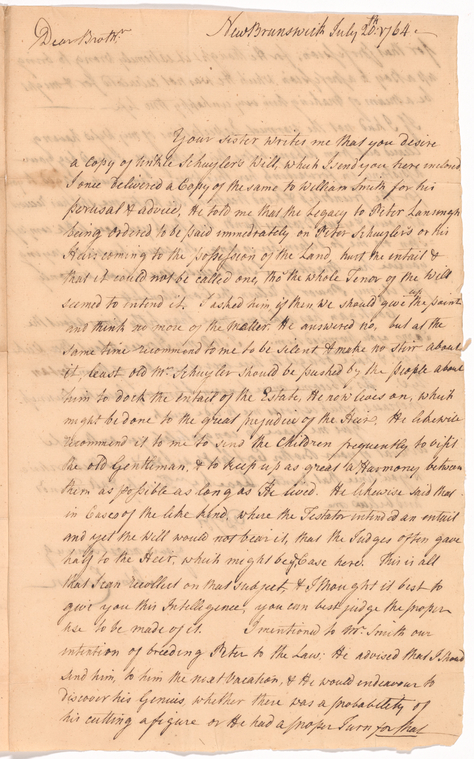 New Brunswick July 20th. 1764
Dear Brothr.
Your Sister writes me that you desire
a copy of Unkle Schuyler's Will, which I send you here inclosed
I once Delivered a Copy of the same to William Smith for his
perusal & advice, He told me that the Legacy to Peter Lansingh
being ordered to be paid immediately on Peter Schuyler's or his
Heirs coming to the possession of the Land, hurt the entail &
that it could not be called one, tho' the whole Tenor of the Will
seemed to intend it. I asked him if then we should give up the point
and think no more of the matter. He answered no, but at the
same time recommend to me to be silent & make no stirr about
it, least old Mr. Schuyler should be pushed by the people about
him to dock the entail of the Estate, He now lives on, which
might be done to the great prejudice of the Heir, He likewise
recommend it to me to send the Children frequently to visit
the old Gentleman, & to keep up as great a Harmony between
them as possible as long as He lived. He likewise said that
in Cases of the like kind, where the Testator intended an entail
and yet the Will would not bear it, that the Judges often gave
half to the Heir, which might be ye. Case here. This is all
that I can recollect on that subject, & I thought it best to
give you this Intelligence, you can best judge the proper
use to be made of it. I mentioned to Mr. Smith our
intention of breeding Peter to the Law; He advised that I should
send him, to him the next vacation, & He would endeavour to
discover his Genius, whether there was a probability of
his cutting a figure or He had a proper Turn for that